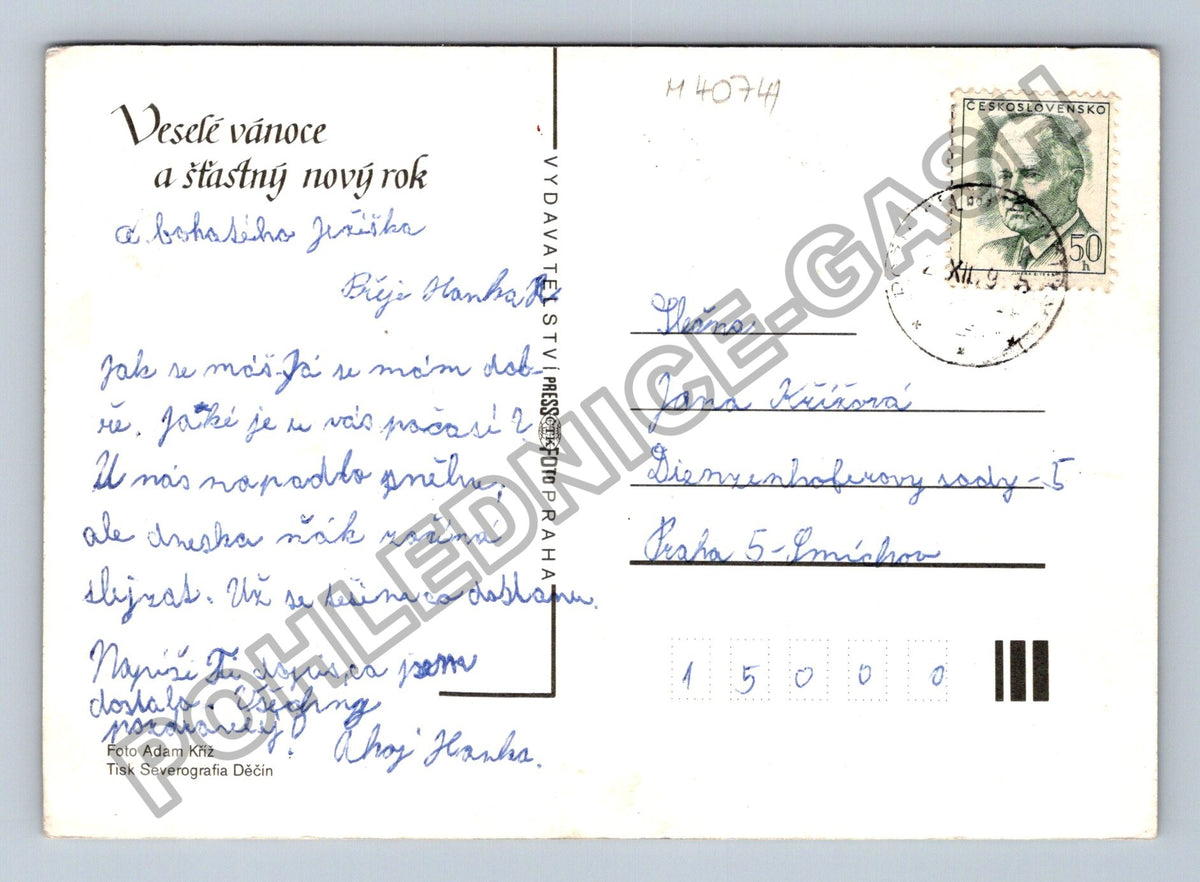 Veselé vánoce
a šťastný nový rok
a bohatého Ježíška
Přeje Hanka K
Jak se máš. Já se mám dob-
ře. Jaké je u vás počasí?
U nás napadlo sněhu,
ale dneska ňák začíná
slejzat. Už se těším co dostanu.
Napíši Ti dopis, co jsem
dostala. Všechny
pozdravuj! Ahoj Hanka.
Foto Adam Kříž
Tisk Severografia Děčín
VYDAVATELSTVÍ PRESSFOTO PRAHA
ČTK
M 40741
ČESKOSLOVENSKO
50
h
XII. 9
Slečna
Jana Křížová
Dienzenhoferovy sady - 5
Praha 5 - Smíchov
15000
POHLEDNICE-GASH